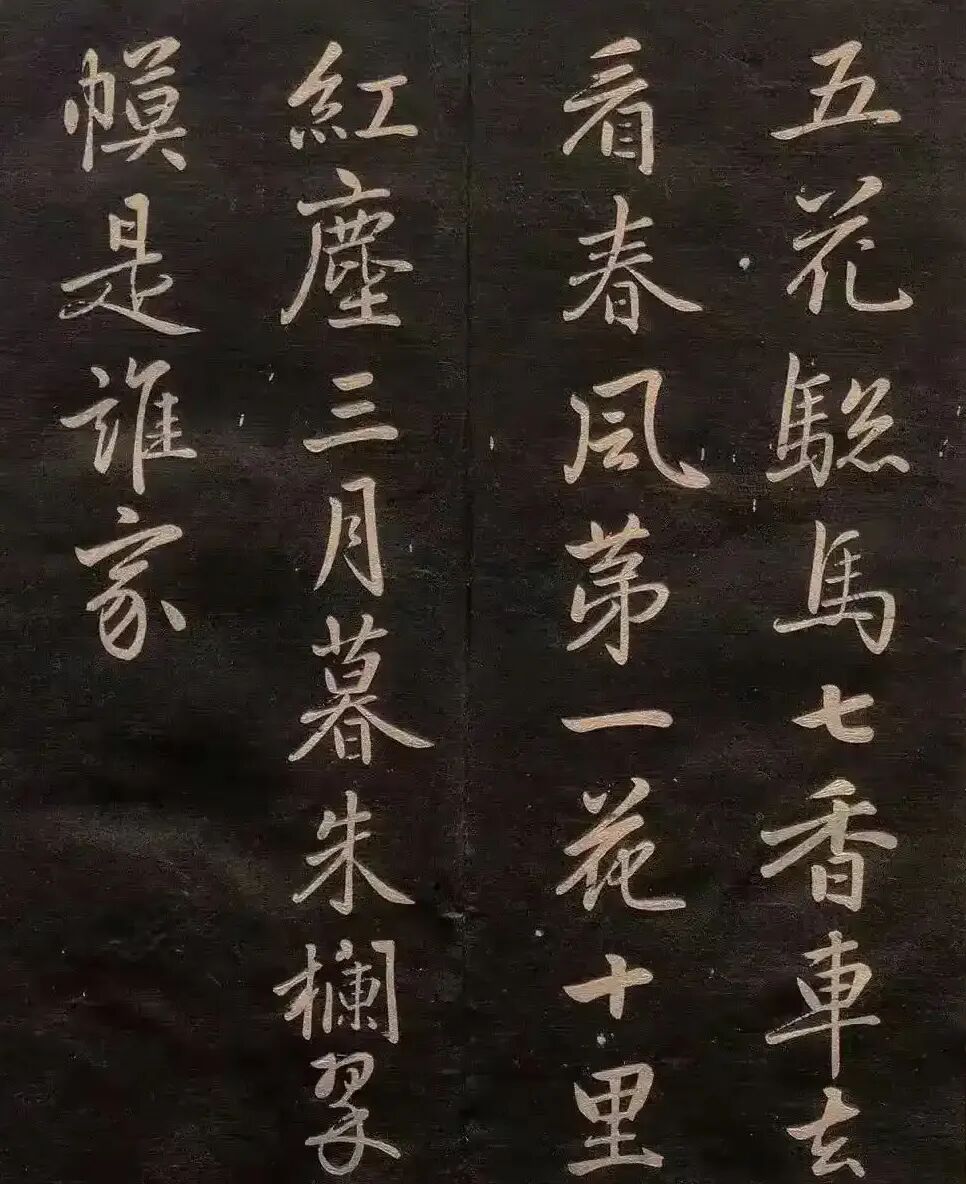 五花驄馬七香車去
看春風苐一花十里
紅塵三月暮朱欄翠
幙是誰家